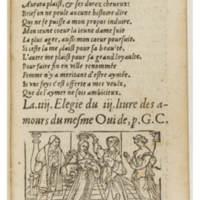 Aurora plaist, & ses dorez cheueux:
Brief on ne peult aucune histoire dire
Qui ne se puisse a mon propos induire.
Mon ieune cœur la ieune dame suit
La plus agee, aussi mon cœur poursuit.
Si ceste la me plaist pour sa beaulté,
L'autre me plaist pour sa grand loyaulté.
Pour faire fin en ville renommée
Femme n'y a meritant d'estre aymée.
Si vos yeux s'est offerte a mes veulx,
Que de l'aymer ne sois ambicieux.
La .iiij. Elegie du iij. liure des a-
mours du mesme Ouide, p. G. C.